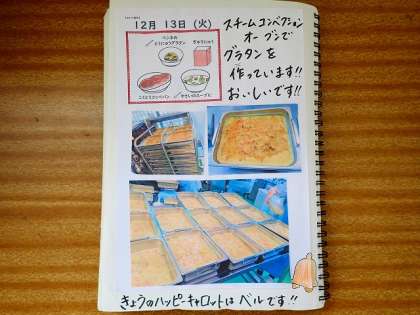 12月 13日 (火)
スチームコンベクション
オーブンで
グラタンを
作っています!!
おいしいです!!
ペンネの
とうにゅうグラタン
ぎゅうにゅう
こくとうコッペパン
やさいのスープに
きょうのハッピーキャロットは ベルです!!